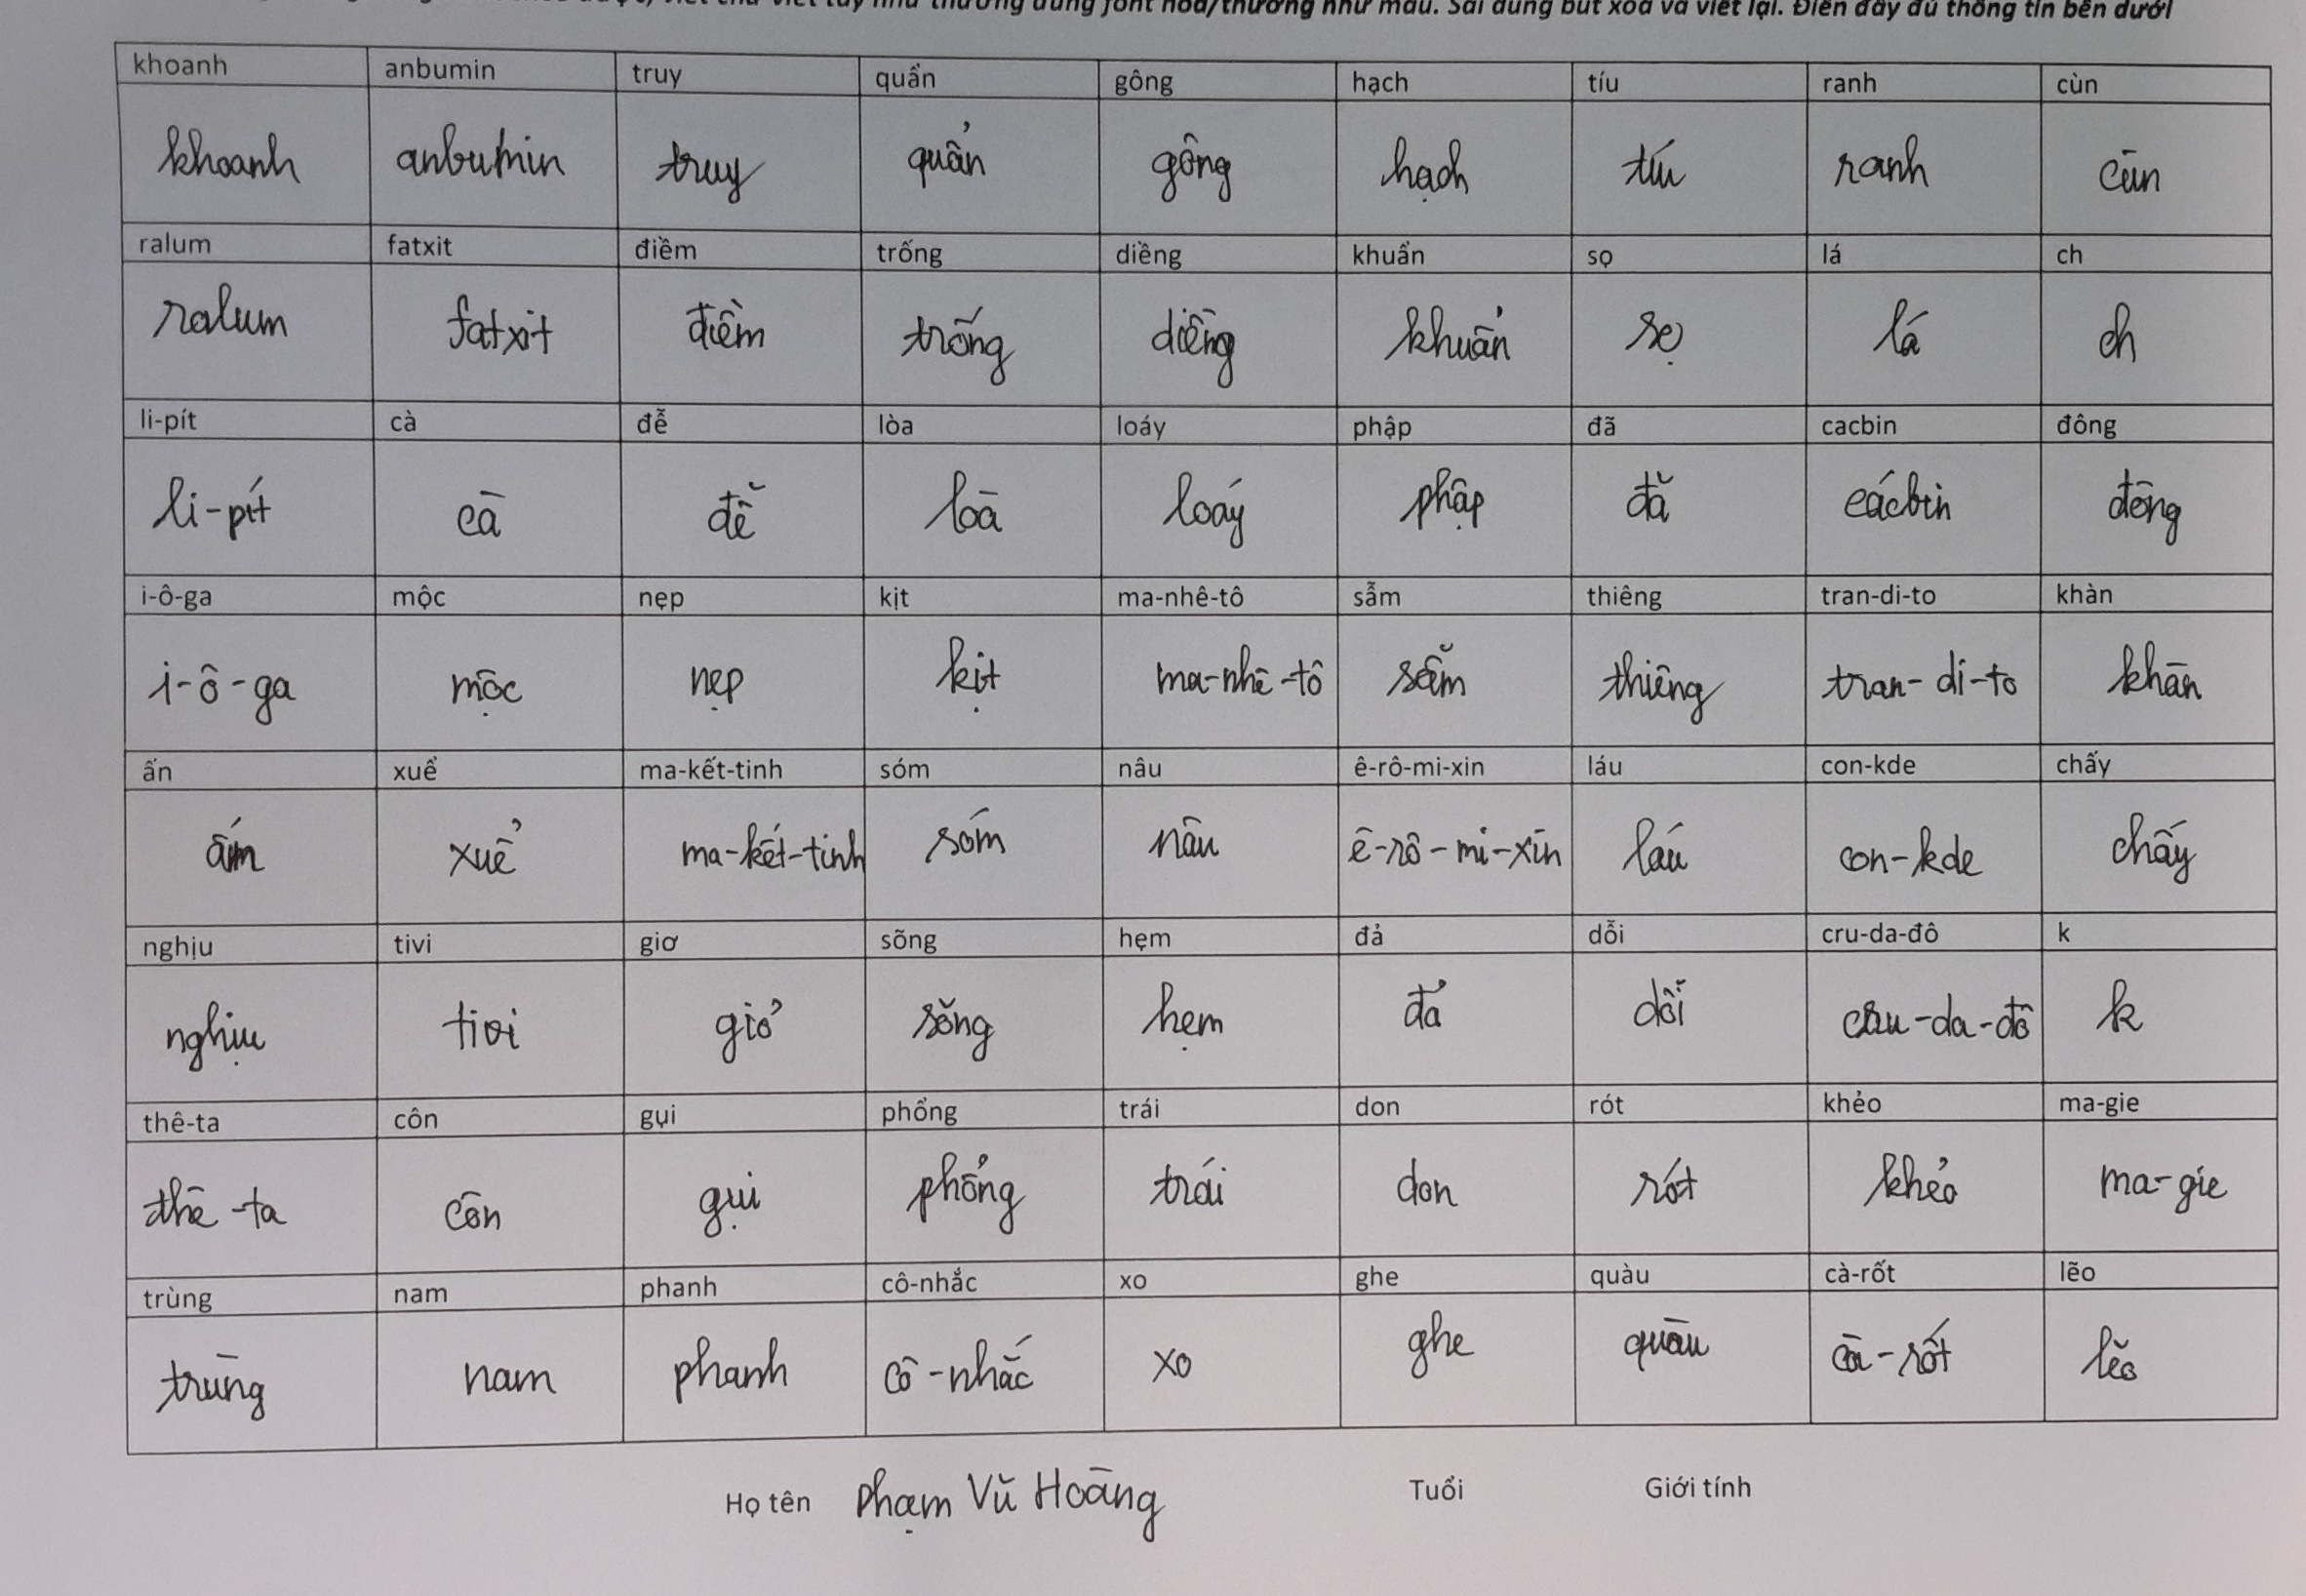 viết chữ viết tay như thường dùng font hoa/thường như mẫu. Sai dùng bút xóa và viết lại. Điền đầy đủ thông tin bên dưới
khoanh anbumin truy quẩn gông hạch tíu ranh cùn
khoanh anbumin truy quẩn gông hạch tíu ranh cùn
ralum fatxit điềm trống diềng khuẩn sọ lá ch
ralum fatxit điềm trống diềng khuẩn sọ lá ch
li-pít cà đễ lòa loáy phập đã cacbin đông
li-pít cà đễ loà loáy phập đã cácbin đông
i-ô-ga mộc nẹp kịt ma-nhê-tô sẫm thiêng tran-di-to khàn
i-ô-ga mộc nẹp kịt ma-nhê-tô sẫm thiêng tran-di-to khàn
ấn xuể ma-kết-tinh sóm nâu ê-rô-mi-xin láu con-kde chấy
ấm xuể ma-kết-tinh sóm nâu ê-rô-mi-xin láu con-kde chấy
nghịu tivi giơ sõng hẹm đả dỗi cru-da-đô k
nghịu tivi giơ sõng hẹm đả dỗi cru-da-đô k
thê-ta côn gụi phổng trái don rót khẻo ma-gie
thê-ta côn gụi phổng trái don rót khẻo ma-gie
trùng nam phanh cô-nhắc xo ghe quàu cà-rốt lẽo
trùng nam phanh cô-nhắc xo ghe quàu cà-rốt lẽo
Họ tên Phạm Vũ Hoàng Tuổi Giới tính